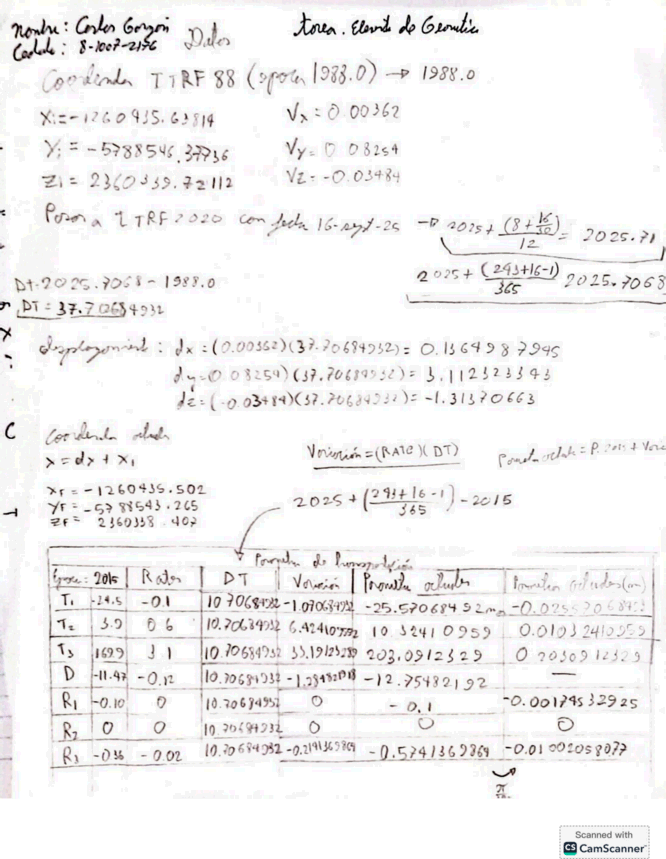 Nombre: Carlos Garzón
Tarea. Elements de Geomática
Cedula: 8-1007-2176
Datos
Coordenda TTRF 88 (epoca 1988.0) → 1988.0
X1=-1260435.63814
Vx = 0.00362
Y1 = -5788546.37736
Vy= 0.08254
Z1 = 2360339.72112
Vz= -0.03484
Pasar a ITRF 2020 con fecha 16-sept-25 → 2025+ (8+16/30)/12 = 2025.71
2025+ (243+16-1)/365 2025.7068
Dt=2025.7068 - 1988.0
DT= 37.70684932
dx = (0.00362)(37.70684932)= 0.1364987945
dy=(0.08254)(37.70684932)= 3.112323343
dz=(-0.03484)(37.70684932)= -1.31370663
Coordenda
x = dx + x1
Variación=(RATE)(DT)
XF = -1260435.502
YF = -5788543.265
ZF= 2360338.407
2025 + (243+16-1/365) - 2015
Epoca: 2015 | Rates | DT | Variación
T1 | -24.5 | -0.1 | 10.70684932 | -1.070684932 | -25.57068492 | -0.02557068493
T2 | 3.9 | 0.6 | 10.70684932 | 6.424109592 | 10.32410959 | 0.01032410959
T3 | 169.9 | 3.1 | 10.70684932 | 33.19123289 | 203.0912329 | 0.2030912329
D | -11.47 | -0.12 | 10.70684932 | -1.284821918 | -12.75482192 | —
R1 | -0.10 | 0 | 10.70684932 | 0 | -0.1 | -0.00174532925
R2 | 0 | 0 | 10.70684932 | 0 | 0 | 0
R3 | -0.36 | -0.02 | 10.70684932 | -0.2141369864 | -0.5741369864 | -0.01002058077
π
Scanned with
CS CamScanner